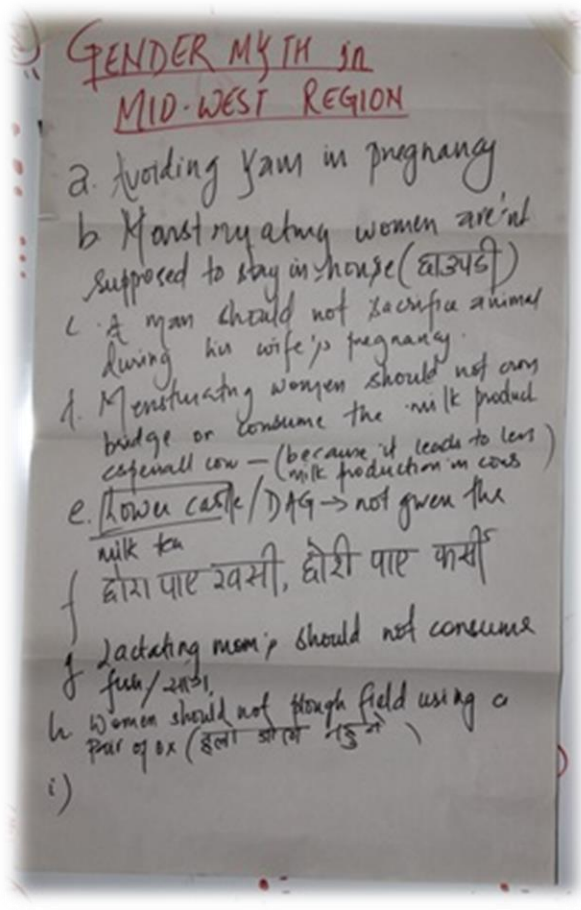 GENDER MYTH in
MID-WEST REGION
a. Avoiding Yam in pregnancy
b Menstruating women are'nt
supposed to stay in house (छाउपडी)
c. A man should not sacrifice animal
during his wife's pregnancy.
d. Menstruating women should not cross
bridge or consume the milk product
especiall cow – (because it leads to less
milk production in cows)
e. Lower caste / DAG → not given the
milk tea
f छोरा पाए खसी, छोरी पाए फर्सी
g Lactating mom's should not consume
fish / साग.
h Women should not plough field using a
pair of ox (हलो
i)